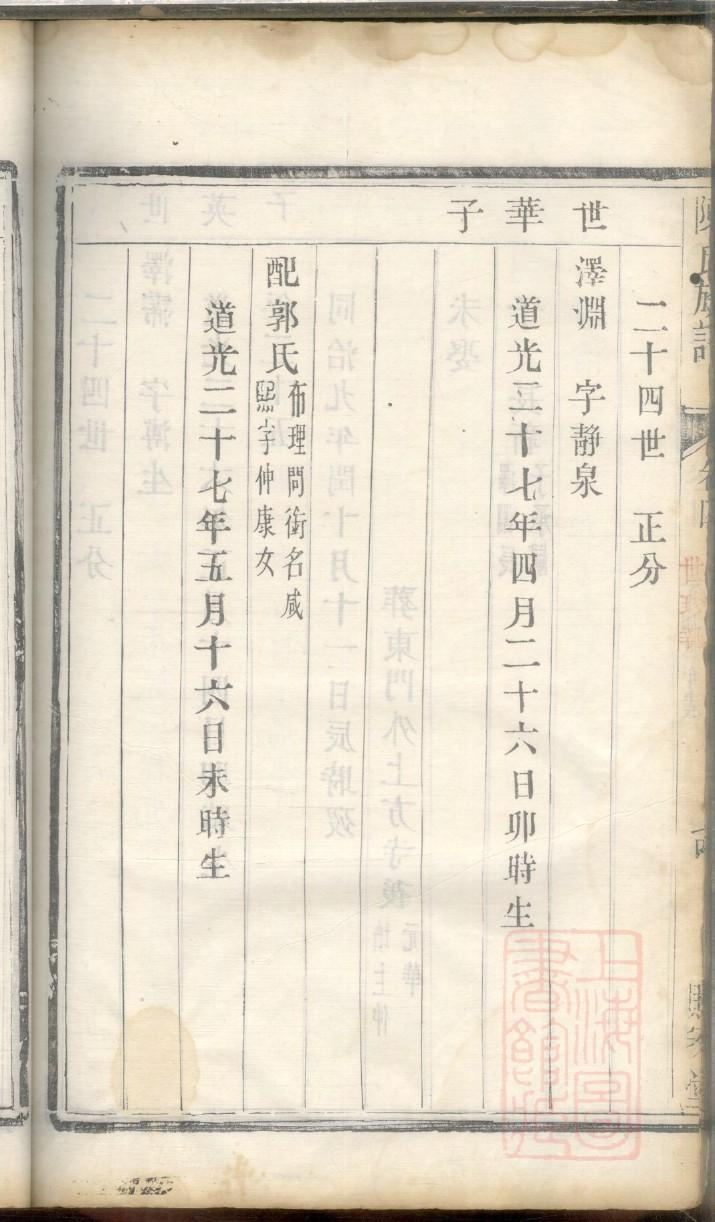 陳氏族譜
卷四
二十四世 正分
世華子
澤淵 字靜泉
道光二十七年四月二十六日卯時生
配郭氏 布理問銜名咸
熙字仲康女
道光二十七年五月十六日未時生
上海圖書館藏